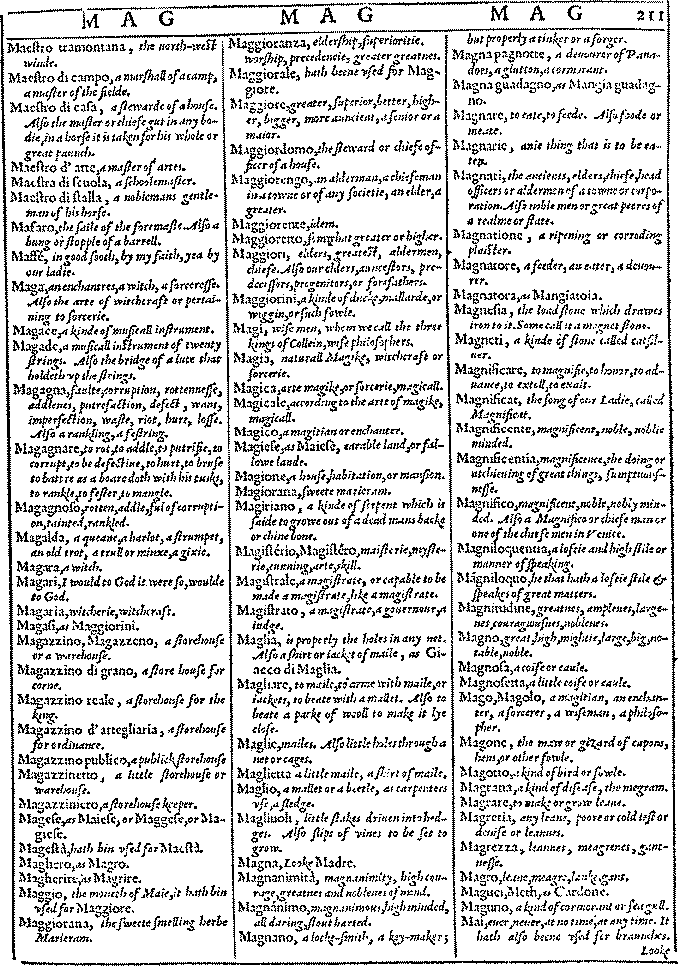 MAG MAG MAG 211
Maestro tramontana, the north-west
winde.
Maestro di campo, a marshall of a camp,
a master of the fielde.
Maestro di casa, a stewarde of a house.
Also the master or chiefe gut in any bo-
die, in a horse it is taken for his whole or
great paunch.
Maestro d'arte, a master of artes.
Maestra di scuola, a schoolemaster.
Maestro di stalla, a noblemans gentle-
man of his horse.
Mafaro, the saile of the foremaste. Also a
bung or stopple of a barrell.
Maffè, in good sooth, by my faith, yea by
our ladie.
Maga, an enchantres, a witch, a sorceresse.
Also the arte of witchcraft or pertai-
ning to sorcerie.
Magace, a kinde of musicall instrument.
Magade, a musicall instrument of twenty
strings. Also the bridge of a lute that
holdeth vp the strings.
Magagna, faulte, corruption, rottennesse,
addlenes, putrefaction, defect, want,
imperfection, waste, riot, hurt, losse.
Also a rankling, a festring.
Magagnare, to rot, to addle, to putrifie, to
corrupt, to be defectine, to hurt, to bruse
to battre as a boare doth with his tuskes,
to rankle, to fester, to mangle.
Magagnoso, rotten, addle, ful of corrupti-
on, tainted, rankled.
Magalda, a queane, a harlot, a strumpet,
an old trot, a trull or minxe, a gixie.
Magara, a witch.
Magari, I would to God it were so, woulde
to God.
Magaria, witcherie, witchcraft.
Magasi, as Maggiorini.
Magazzino, Magazzeno, a storehouse
or a warehouse.
Magazzino di grano, a store house for
corne.
Magazzino reale, a storehouse for the
king.
Magazzino d'artegliaria, a storehouse
for ordinance.
Magazzino publico, a publick storehouse
Magazzinetto, a little storehouse or
warehouse.
Magazziniero, a storehouse keeper.
Magese, as Maiese, or Maggese, or Ma-
giese.
Magestà, hath bin vsed for Maestà.
Maghero, as Magro.
Magherire, as Magrire.
Maggio, the moneth of Maie, it hath bin
vsed for Maggiore.
Maggiorana, the sweete smelling herbe
Marieram.
Maggioranza, eldership, superioritie.
worship, precedencie, greater greatnes.
Maggiorale, hath beene vsed for Mag-
giore.
Maggiore, greater, superior, better, high-
er, bigger, more auncient, a senior or a
maior.
Maggiordomo, the steward or chiefe of-
ficer of a house.
Maggiorengo, an alderman, a chiefe man
in a towne or of any societie, an elder, a
greater.
Maggiorente, idem.
Maggioretto, somwhat greater or higher.
Maggiori, elders, greatest, aldermen,
chiefe. Also our elders, ancestors, pre-
decessors, progenitors, or forefathers.
Maggiorini, a kinde of ducke, mallarde, or
wiggin, or such fowle.
Magi, wise men, whom we call the three
kings of Collein, wise philosophers.
Magia, naturall Magike, witchcraft or
sorcerie.
Magica, arte magike, or sorcerie, magicall.
Magicale, according to the arte of magike,
magicall.
Magico, a magitian or enchanter.
Magiese, as Maiese, earable land, or fal-
lowe lande.
Magione, a house, habitation, or mansion.
Magiorana, sweete marieram.
Magiriano, a kinde of serpent which is
saide to growe out of a dead mans backe
or chine bone.
Magistério, Magistéro, maisterie, myste-
rie, cunning, arte, skill.
Magistrale, a magistrate, or capable to be
made a magistrate, like a magistrate.
Magistrato, a magistrate, a governour, a
iudge.
Maglia, is properly the holes in any net.
Also a shirt or iacket of maile, as Gi-
acco di Maglia.
Magliare, to maile, to arme with maile, or
iackets, to beate with a mallet. Also to
beate a packe of wooll to make it lye
close.
Maglie, mailes. Also little holes through a
net or cages.
Maglietta a little maile, a shirt of maile.
Maglio, a mallet or a beetle, as carpenters
vse, a sledge.
Maglinoli, little stakes driuen into hed-
ges. Also slips of vines to be set to
grow.
Magna, Looke Madre.
Magnanimità, magnanimity, high cou-
rage, greatnes and noblenes of mind.
Magnánimo, magnanimous, high minded,
all daring, stout harted.
Magnano, a locke-smith, a key-maker;
but properly a tinker or a forger.
Magna pagnotte, a deuourer of Pana-
does, a glutton, a cormorant.
Magna guadagno, as Mangia guadag-
no.
Magnare, to eate, to feede. Also foode or
meate.
Magnarie, anie thing that is to be ea-
ten.
Magnati, the ancients, elders, chiefe, head
officers or aldermen of a towne or corpo-
ration. Also noble men or great peeres of
a realme or state.
Magnatione, a ripening or corroding
plaister.
Magnatore, a feeder, an eater, a deuou-
rer.
Magnatora, as Mangiatoia.
Magnesia, the load stone which drawes
iron to it. Some call it a magnet stone.
Magneti, a kinde of stone called
Magnificare, to magnifie, to honor, to ad-
uance, to extoll, to exalt.
Magnificat, the song of our Ladie, called
Magnificat.
Magnificente, magnificent, noble, noblie
minded.
Magnificentia, magnificence, the doing or
atchieuing of great things, sumptuous-
nesse.
Magnifico, magnificent, noble, nobly min-
ded. Also a Magnifico or chiefe man or
one of the chiefe men in Venice.
Magniloquentia, a loftie and high stile or
manner of speaking.
Magniloquo, he that hath a loftie stile &
speakes of great matters.
Magnitudine, greatnes, amplenes, large-
nes, couragiousnes, noblenes.
Magno, great, high, mightie, large, big, no-
table, noble.
Magnosa, a coife or caule.
Magnosetta, a little coife or caule.
Mago, Magolo, a magitian, an enchan-
ter, a sorcerer, a wiseman, a philoso-
pher.
Magone, the maw or gizard of capons,
hens, or other fowle.
Magotto, a kind of bird or fowle.
Magrana, a kind of disease, the megram.
Magrare, to make or grow leane.
Magretia, any leane, poore or cold test or
deuise or leannes.
Magrezza, leannes, meagrenes, gant-
nesse.
Magro, leane, meagre, lanke, gant.
Maguci, Meth, as Cardone.
Maguno, a kind of cormorant or sea gull.
Mai, euer, neuer, at no time, at any time. It
hath also beene vsed for branches.
Looke